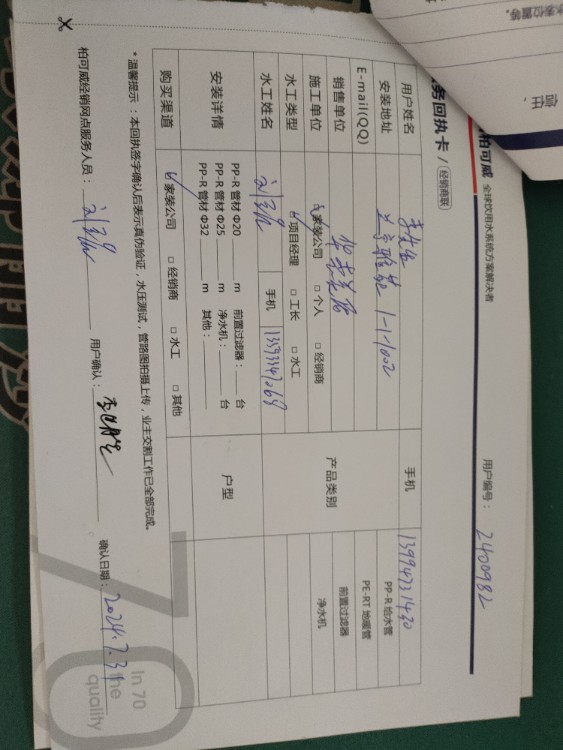 水表位置等.
柏可威 全球饮用水系统方案解决者
务回执卡 / 经销商联
用户编号: 2400982
用户姓名 手机 13994731430
安装地址 1-1-1002
E-mail(QQ)
销售单位
产品类别
PP-R 给水管
PE-RT 地暖管
前置过滤器
净水机
施工单位 ☑家装公司 □ 个人 □ 经销商
水工类型 ☑项目经理 □ 工长 □ 水工
水工姓名 手机 13593347069
安装详情
PP-R 管材 Φ20 m 前置过滤器: 台
PP-R 管材 Φ25 m 净水机: 台
PP-R 管材 Φ32 m 其他:
户型
购买渠道 ☑家装公司 □ 经销商 □ 水工 □ 其他
* 温馨提示:本回执签字确认后表示真伪验证,水压测试,管路图拍摄上传,业主交割工作已全部完成。
柏可威经销网点服务人员: 用户确认: 确认日期: 2024.7.31
70
In 70
the
quality